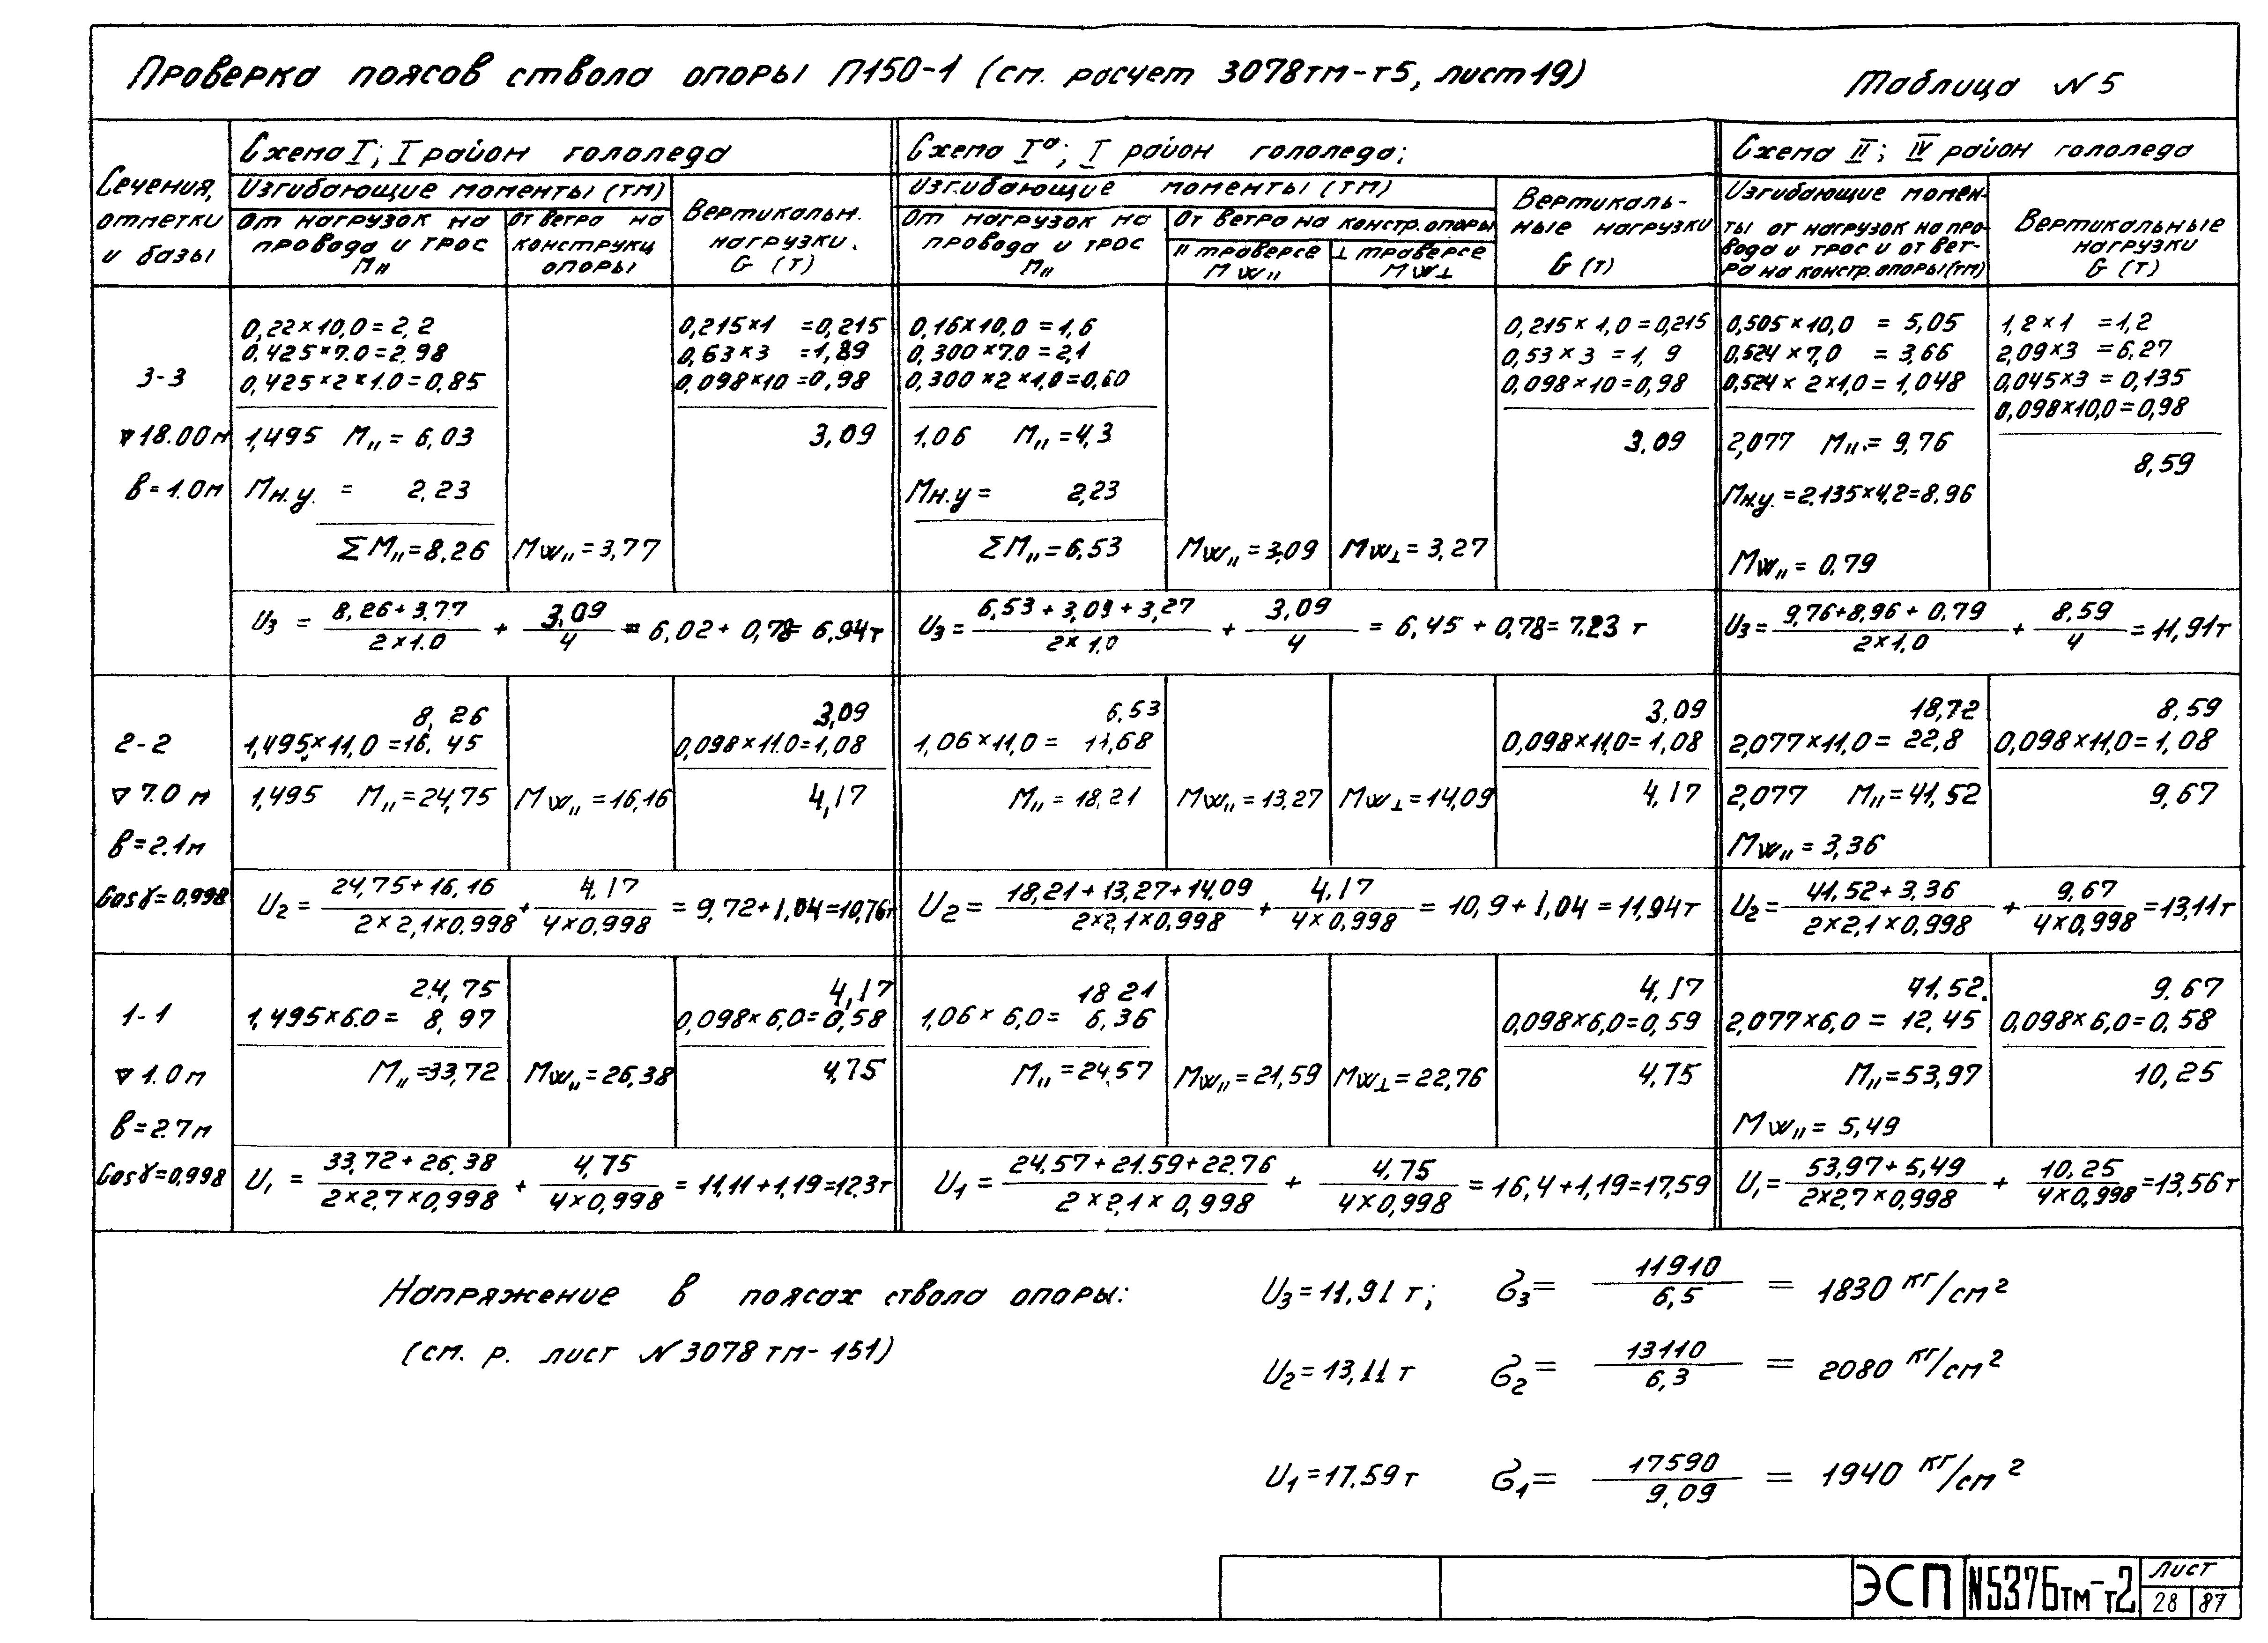 Проверка поясов ствола опоры П150-1 (см. расчет 3078тм-т5, лист 19)
Таблица N 5
Сечения,
отметки
и базы
Схема I; I район гололеда
Изгибающие моменты (тм)
От нагрузок на
провода и трос
M∥
От ветра на
конструкц
опоры
Вертикальн.
нагрузки.
G (т)
Схема Iа; I район гололеда;
Изгибающие моменты (тм)
От нагрузок на
провода и трос
M∥
От ветра на констр. опоры
∥ траверсе
MW∥
⊥ траверсе
MW⊥
Вертикаль-
ные нагрузки
G (т)
Схема II; IV район гололеда
Изгибающие момен-
ты от нагрузок на про-
вода и трос и от вет-
ра на констр. опоры (тм)
Вертикальные
нагрузки
G (т)
3-3
▽18.00м
в=1.0м
0,22×10,0=2,2
0.425×7.0=2.98
0,425×2×1.0=0,85
1,495 M∥=6,03
Mн.у. = 2,23
ΣM∥=8,26
MW∥=3,77
0,215×1 =0,215
0,63×3 =1,89
0,098×10=0,98
3,09
0,16×10,0=1,6
0,300×7.0=2,1
0,300×2×1,0=0,60
1,06 M∥=4,3
Mн.у= 2,23
ΣM∥=6,53
MW∥=3,09
MW⊥=3,27
0,215×1,0=0,215
0,53×3 =1, 9
0,098×10=0,98
3,09
0,505×10,0 = 5,05
0,524×7,0 = 3,66
0,524×2×1,0=1,048
2,077 M∥=9,76
Mн.у.=2.135×4,2=8,96
MW∥=0,79
1,2×1 =1,2
2,09×3 =6,27
0,045×3=0,135
0,098×10,0=0,98
8,59
U3 = 8,26+3,77 / 2×1.0 + 3,09 / 4 = 6,02+0,78=6,94т
U3 = 6,53+3,09+3,27 / 2×1,0 + 3,09 / 4 = 6,45+0,78=7,23 т
U3 = 9,76+8,96+0,79 / 2×1,0 + 8,59 / 4 =11,91т
2-2
▽7.0 м
в=2.1м
Cosγ=0,998
8, 26
1,495×11,0=16, 45
1,495 M∥=24,75
MW∥=16,16
3,09
0,098×11.0=1,08
4,17
6,53
1,06×11,0= 11,68
M∥=18,21
MW∥=13,27
MW⊥=14,09
3,09
0,098×11,0=1,08
4,17
18,72
2,077×11,0= 22,8
2,077 M∥=41,52
MW∥=3,36
8,59
0,098×11,0=1,08
9,67
U2 = 24,75+16,16 / 2×2,1×0,998 + 4,17 / 4×0,998 = 9,72+1,04=10,76т
U2 = 18,21+13,27+14,09 / 2×2,1×0,998 + 4,17 / 4×0,998 = 10,9+1,04=11,94т
U2 = 41,52+3,36 / 2×2,1×0,998 + 9,67 / 4×0,998 =13,11т
1-1
▽1.0м
в=2.7м
Cosγ=0,998
24,75
1,495×6.0= 8, 97
M∥=33,72
MW∥=26,38
4,17
0,098×6,0=0,58
4,75
18 21
1,06×6,0= 6,36
M∥=24,57
MW∥=21,59
MW⊥=22,76
4,17
0,098×6,0=0,59
4,75
41,52.
2,077×6,0 = 12,45
M∥=53,97
MW∥=5,49
9.67
0,098×6,0=0,58
10,25
U1 = 33,72+26,38 / 2×2.7×0,998 + 4,75 / 4×0,998 = 11,11+1,19=12,3т
U1 = 24,57+21.59+22.76 / 2×2,1×0,998 + 4,75 / 4×0,998 =16,4+1,19=17,59
U1 = 53,97+5,49 / 2×2,7×0,998 + 10,25 / 4×0,998 =13,56т
Напряжение в поясах ствола опоры:
(см. р. лист N 3078тм-151)
U3=11.91 т; σ3= 11910 / 6,5 = 1830 кг/см²
U2=13,11 т σ2= 13110 / 6,3 = 2080 кг/см²
U1=17.59 т σ1= 17590 / 9,09 = 1940 кг/см²
ЭСП N5376тм-т2
Лист
28 87